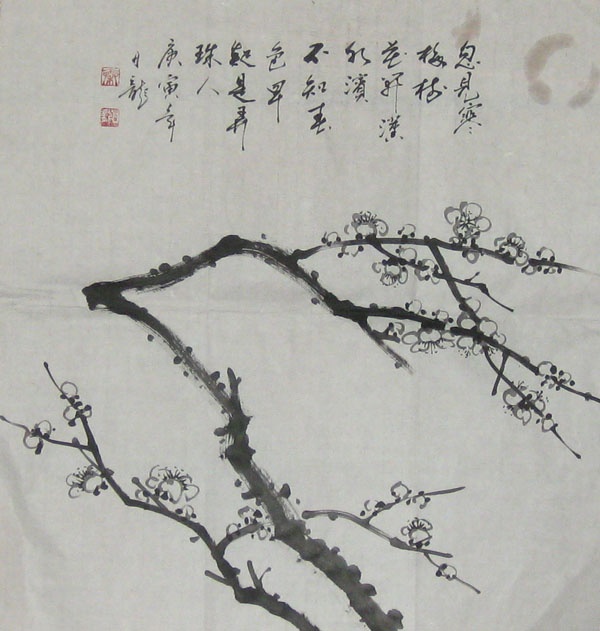 忽見寒
梅树
花开漢
水濱
不知春
色早
疑是弄
珠人
庚寅年
龍